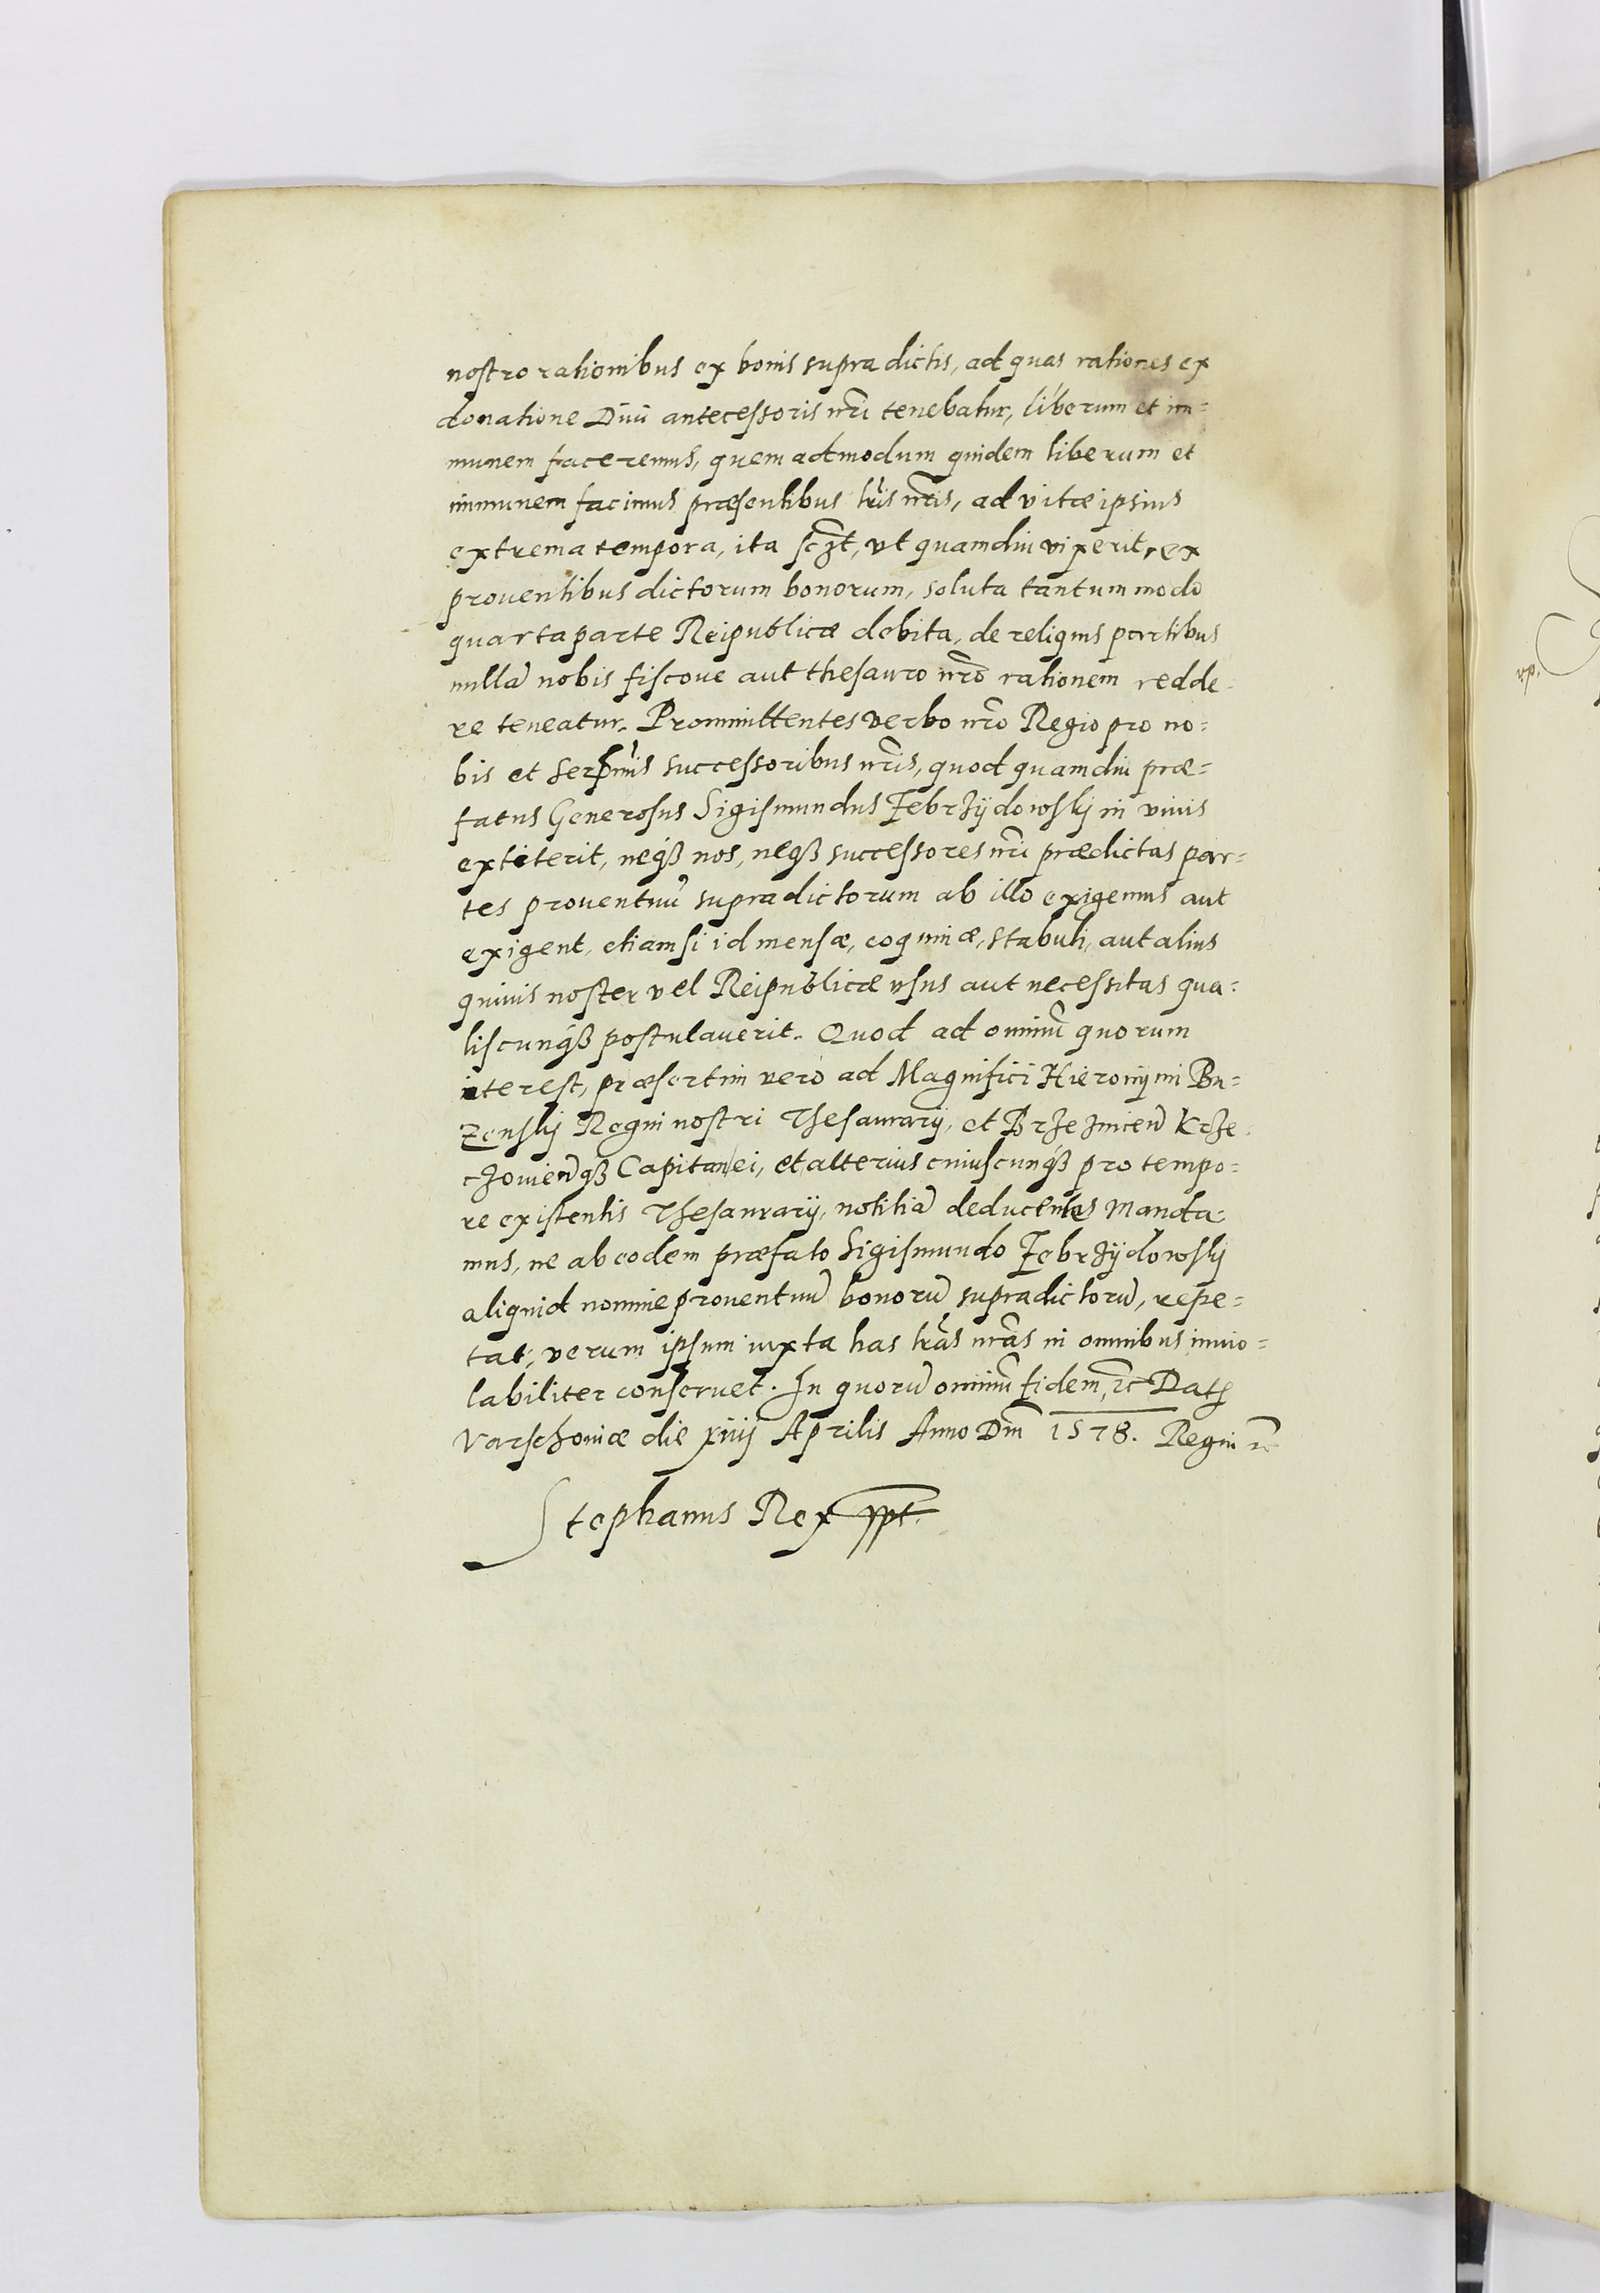 nostro rationibus ex bonis supra dictis, ad quas rationes ex
donatione Diui antecessoris nr̃i tenebatur, liberum et im=
munem faceremus, quem admodum quidem liberum et
immunem facimus præsentibus lr̃is nr̃is, ad vitæ ipsius
extrema tempora, ita sczt, vt quamdiu vixerit, ex
prouentibus dictorum bonorum, soluta tantummodo
quarta parte Reipublicæ debita, de reliquis partibus
nullã nobis fiscoue aut thesauro nr̃o rationem redde-
re teneatur. Promittentes verbo nr̃o Regio pro no=
bis et Serẽmis successoribus nr̃is, quod quamdiu præ=
fatus Generosus Sigismundus Zebrzÿdowskÿ in viuis
extiterit, neqȝ nos, neqȝ successores nr̃i prædictas par=
tes prouentuũ supradictorum ab illo exigemus aut
exigent, etiamsi id mensæ, coquinæ, stabuli, aut alius
quiuis noster vel Reipublicæ vsus aut necessitas qua=
liscunqȝ postulauerit. Quod ad omniũ quorum
interest, præsertim verò ad Magnifici Hieronÿmi Bu=
zenskÿ Regni nostri Thesaurarÿ, et Brzezniceñ Krze-
czouieñqȝ Capitanei, et alterius cuiuscunqȝ pro tempo=
re existentis Thesaurarÿ, notitiã deducentes Manda-
mus, ne ab eodem præfato Sigismundo Zebrzÿdowskÿ
aliquid nomine prouentuũ bonorũ supradictorũ, repe=
tat, verum ipsum iuxta has lr̃as nr̃as in omnibus inuio=
labiliter conseruet. In quorũ omniũ fidem, &c Datȝ
Varschouiæ die xiiij Aprilis Anno Dñi 1578. Regni &c
Stephanus Rex ppt.
vp.